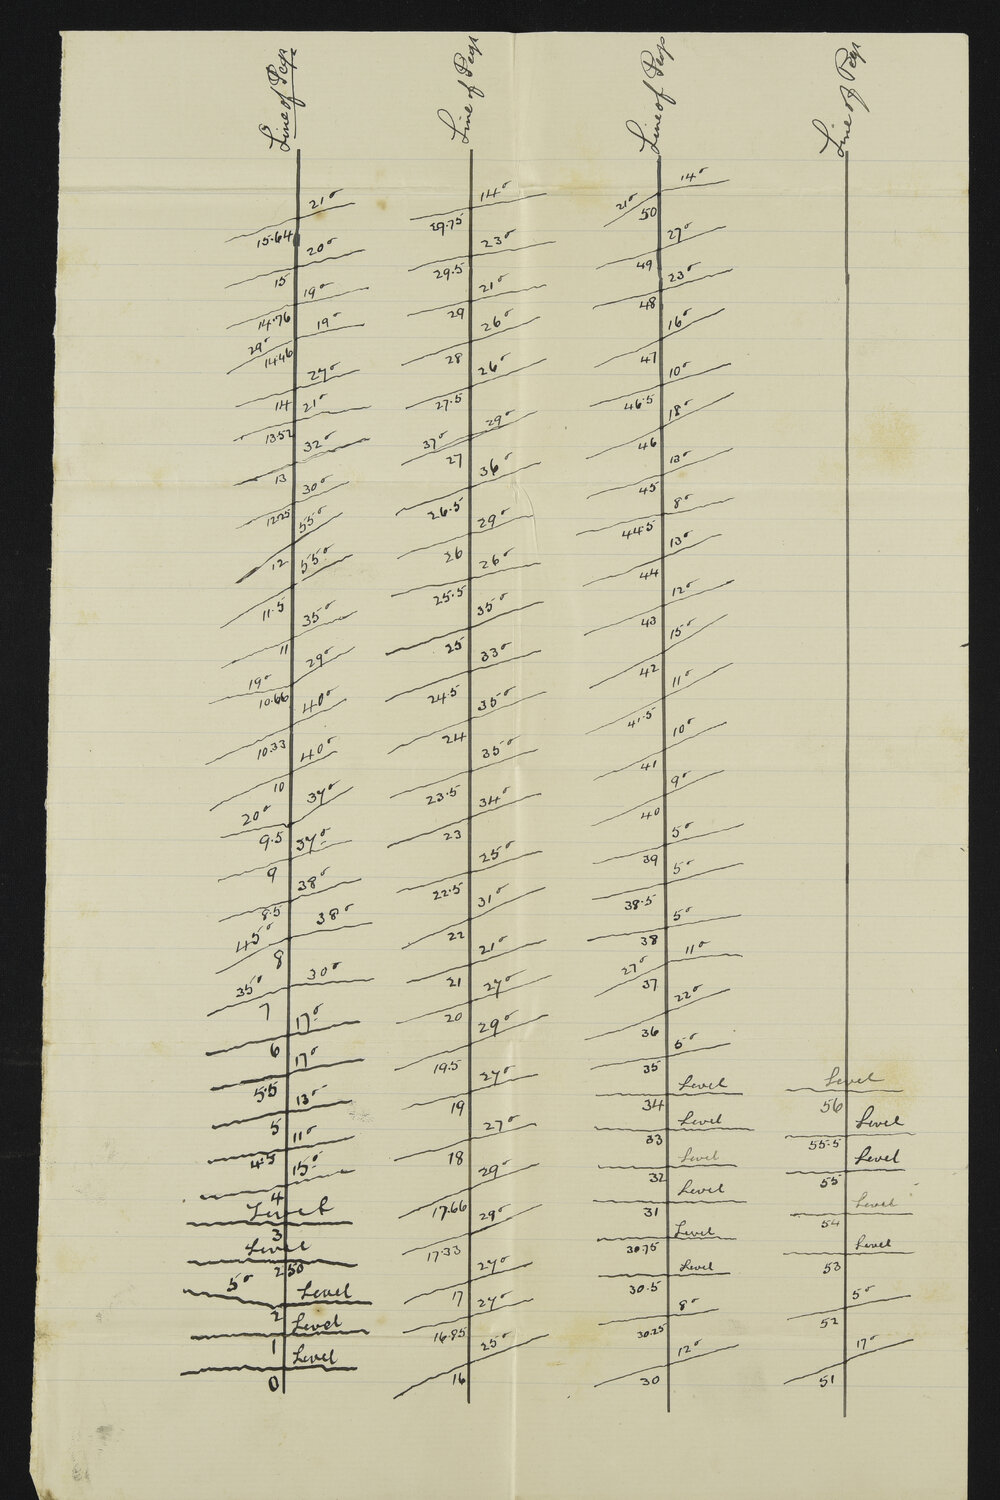 Line of Pegs
21°
15.64
20°
15
19°
14.76
19°
29°
14.46
27°
14
21°
13.52
32°
13
30°
12.25
55°
12
55°
11.5
35°
11
29°
19°
10.66
40°
10.33
40°
10
37°
20°
9.5
37°
9
38°
8.5
38°
45°
8
30°
35°
7
17°
6
17°
5.5
13°
5
11°
4.5
15°
4
Level
3
Level
2.50
5°
Level
2
Level
1
Level
0
Line of Pegs
14°
29.75
23°
29.5
21°
29
26°
28
26°
27.5
29°
37°
27
36°
26.5
29°
26
26°
25.5
35°
25
33°
24.5
35°
24
35°
23.5
34°
23
25°
22.5
31°
22
21°
21
27°
20
29°
19.5
27°
19
27°
18
29°
17.66
29°
17.33
27°
17
27°
25°
16
Line of Pegs
14°
21°
50
27°
49
23°
48
16°
47
10°
46.5
18°
46
13°
45
8°
44.5
13°
44
12°
43
15°
42
11°
41.5
10°
41
9°
40
5°
39
5°
38.5
5°
38
11°
27°
37
22°
36
5°
35
Level
34
Level
33
Level
32
Level
31
Level
30.75
Level
30.5
8°
30.25
12°
30
Line of Pegs
Level
56
Level
55.5
Level
55
Level
54
Level
53
5°
52
17°
51